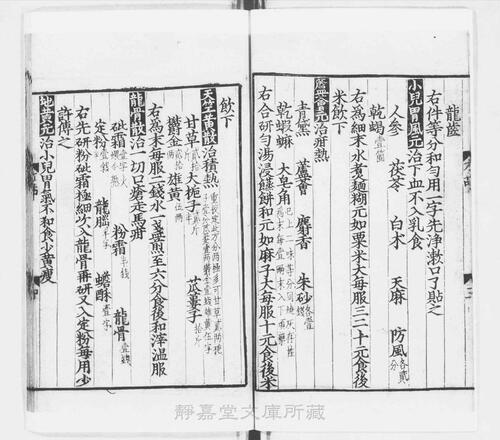 龍齒
右件等分和勻用一字先淨漱口了貼之
小兒胃風元治下血不入乳食
人參 茯苓 白木 天麻 防風各貳分
乾蝎壹箇
右為細末水煮麵糊元如粟米大每服三二十元食後
米飲下
蘆薈元治疳熱
青黛 蘆薈 麝香 朱砂各壹錢
乾蝦蟆 大皂角
右合研勻湯浸蒸餅和元如麻子大每服十元食後米
飲下
天竺黃散治積熱
甘草 大梔子 苽蔞子
鬱金 雄黃
右為末每服二錢水一盞煎至六分食後和滓溫服
龍骨散治一切牙疳走馬疳
砒霜 粉霜 龍骨壹錢
定粉 龍腦 蟾酥壹字
右先研粉砒霜極細次入龍骨再研又入定粉每用少
許傅之
地黃元治小兒胃氣不和食少黃瘦
靜嘉堂文庫所藏